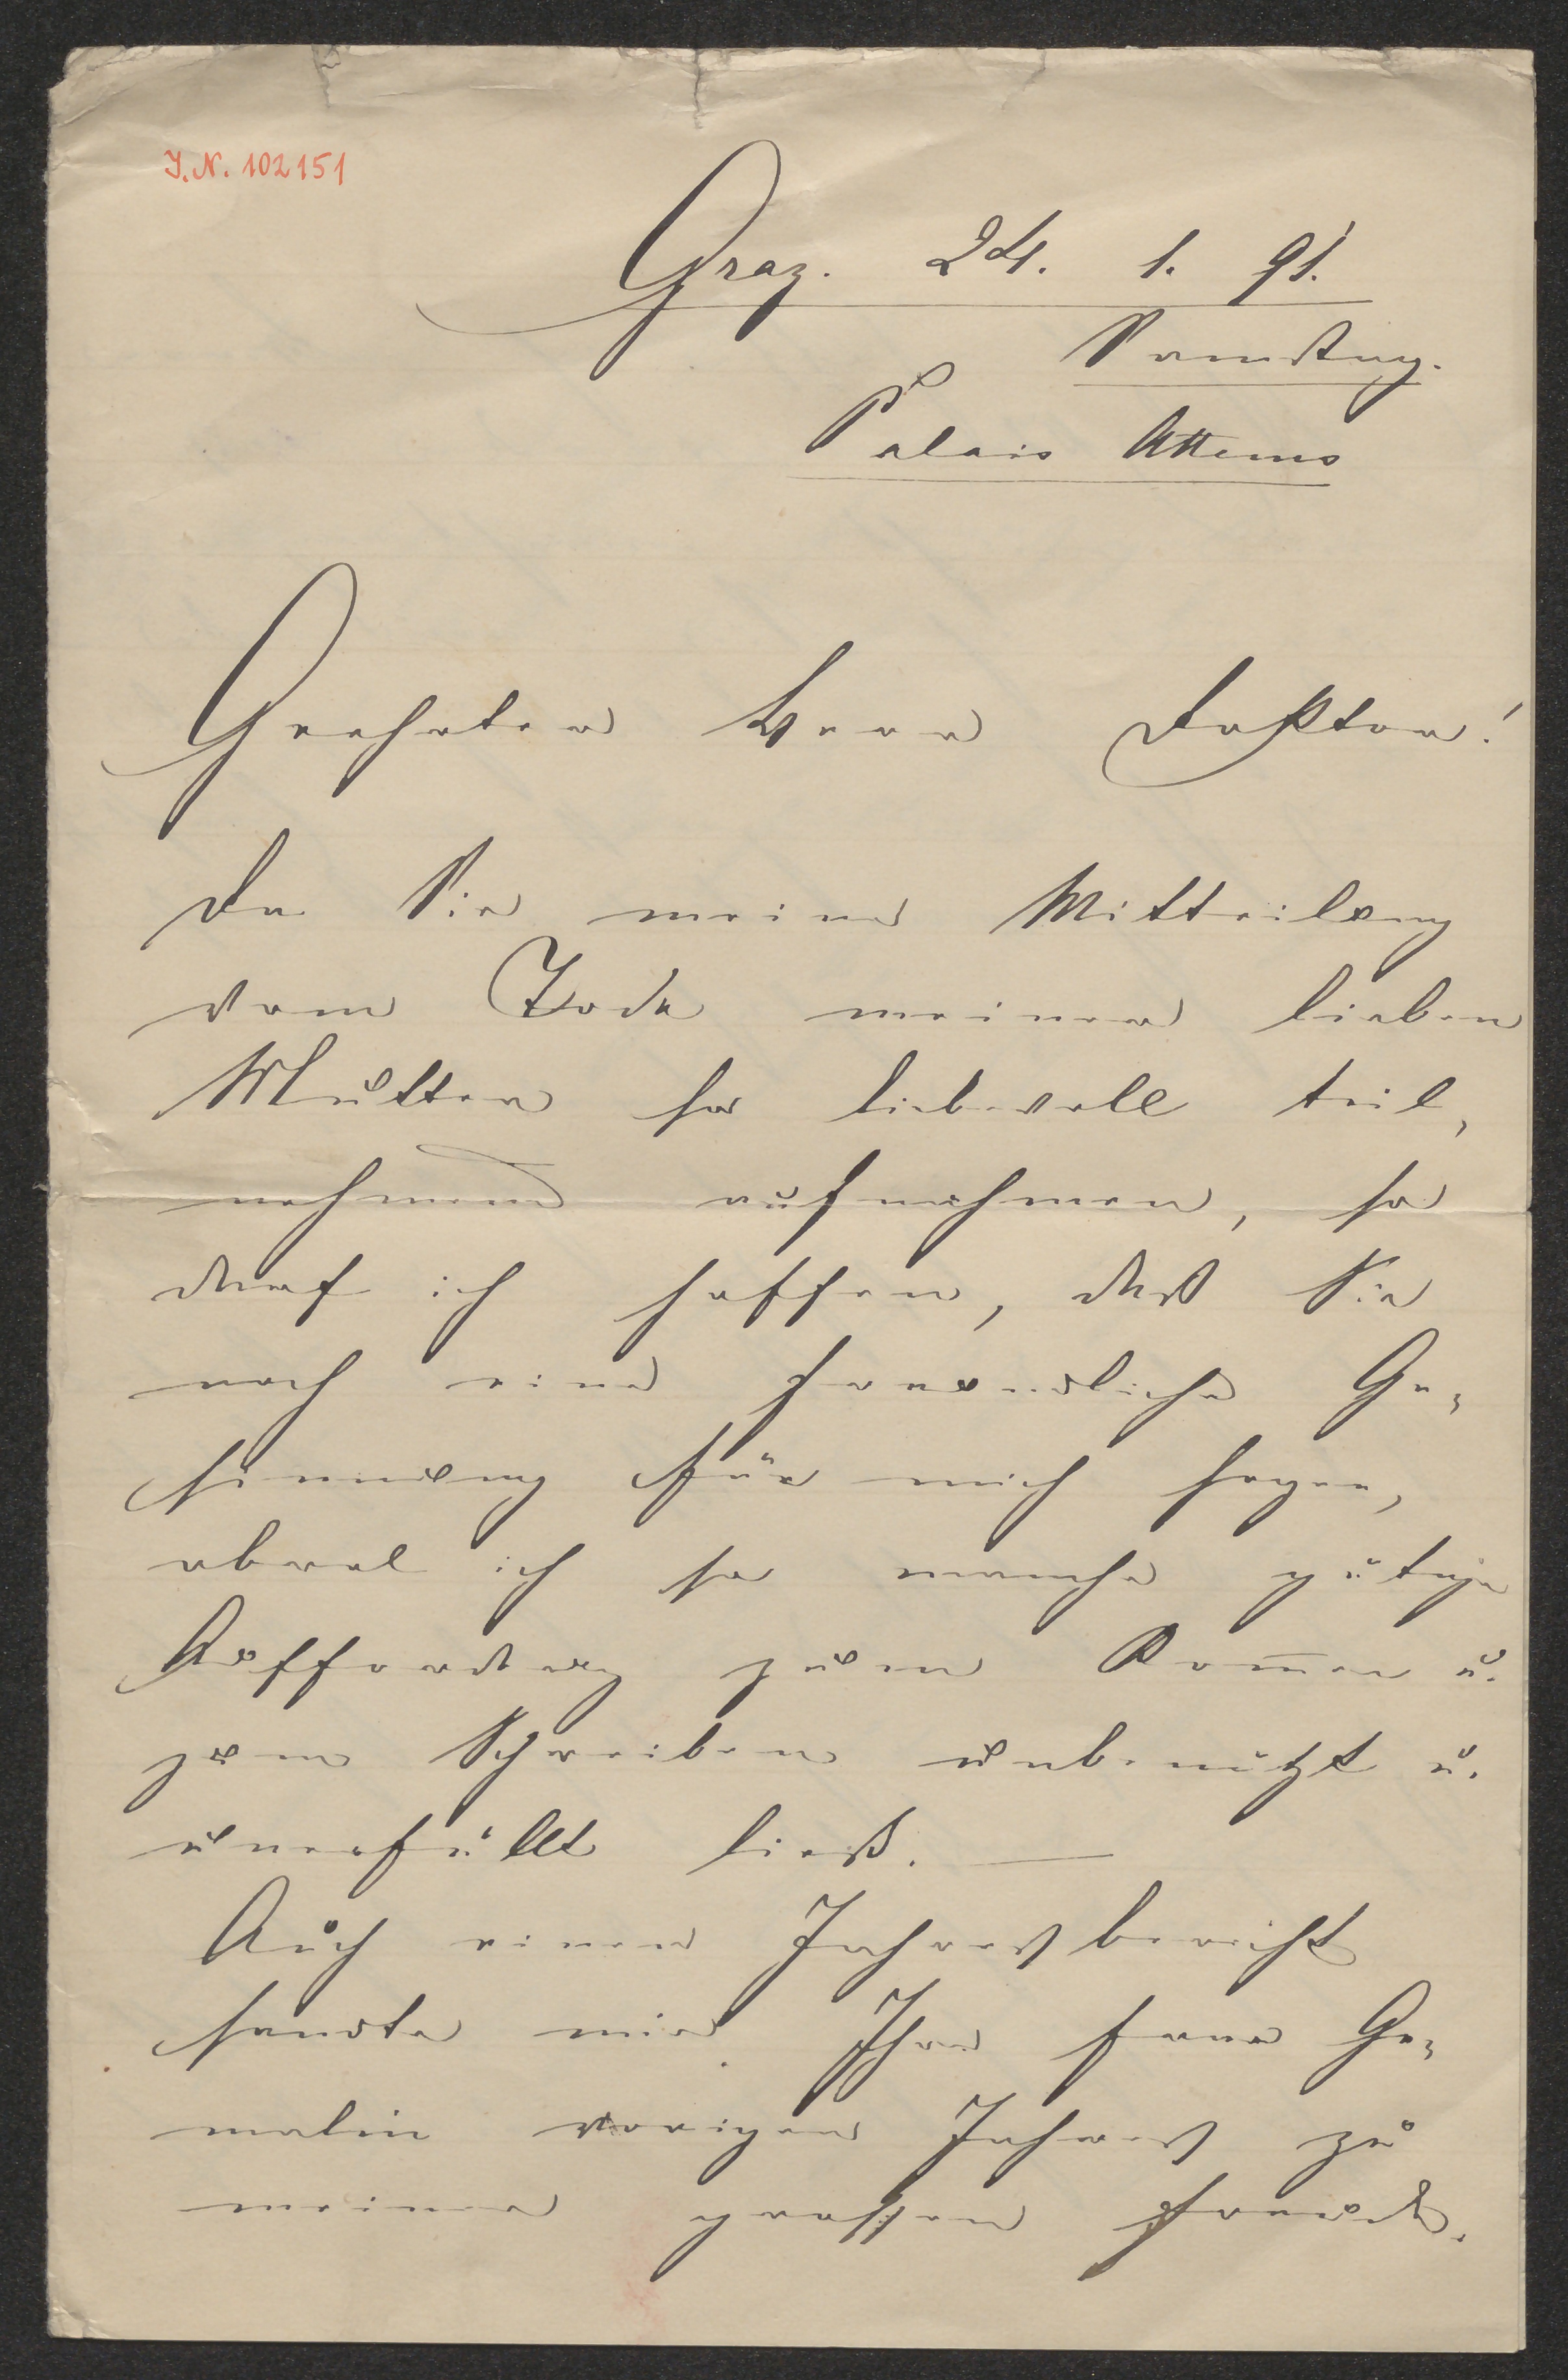 J.N. 102151
Graz. 24. 1. 91.
Samstag.
Palais Attems
Geehrter Herr Doktor!
Da Sie meine Mitteilung
vom Tode meiner lieben
Mutter so liebevoll teil,
nehmend aufnahmen, so
darf ich hoffen, daß Sie
noch eine freundliche Ge-
sinnung für mich hegen,
obwol ich so manche gütige
Aufforderung zum Kom̅en u.
zum Schreiben unbenützt u.
unerfüllt ließ. —
Auch einen Jahresbericht
sandte mir Ihre Frau Ge-
malin vorigen Jahres zu
meiner grossen Freude.